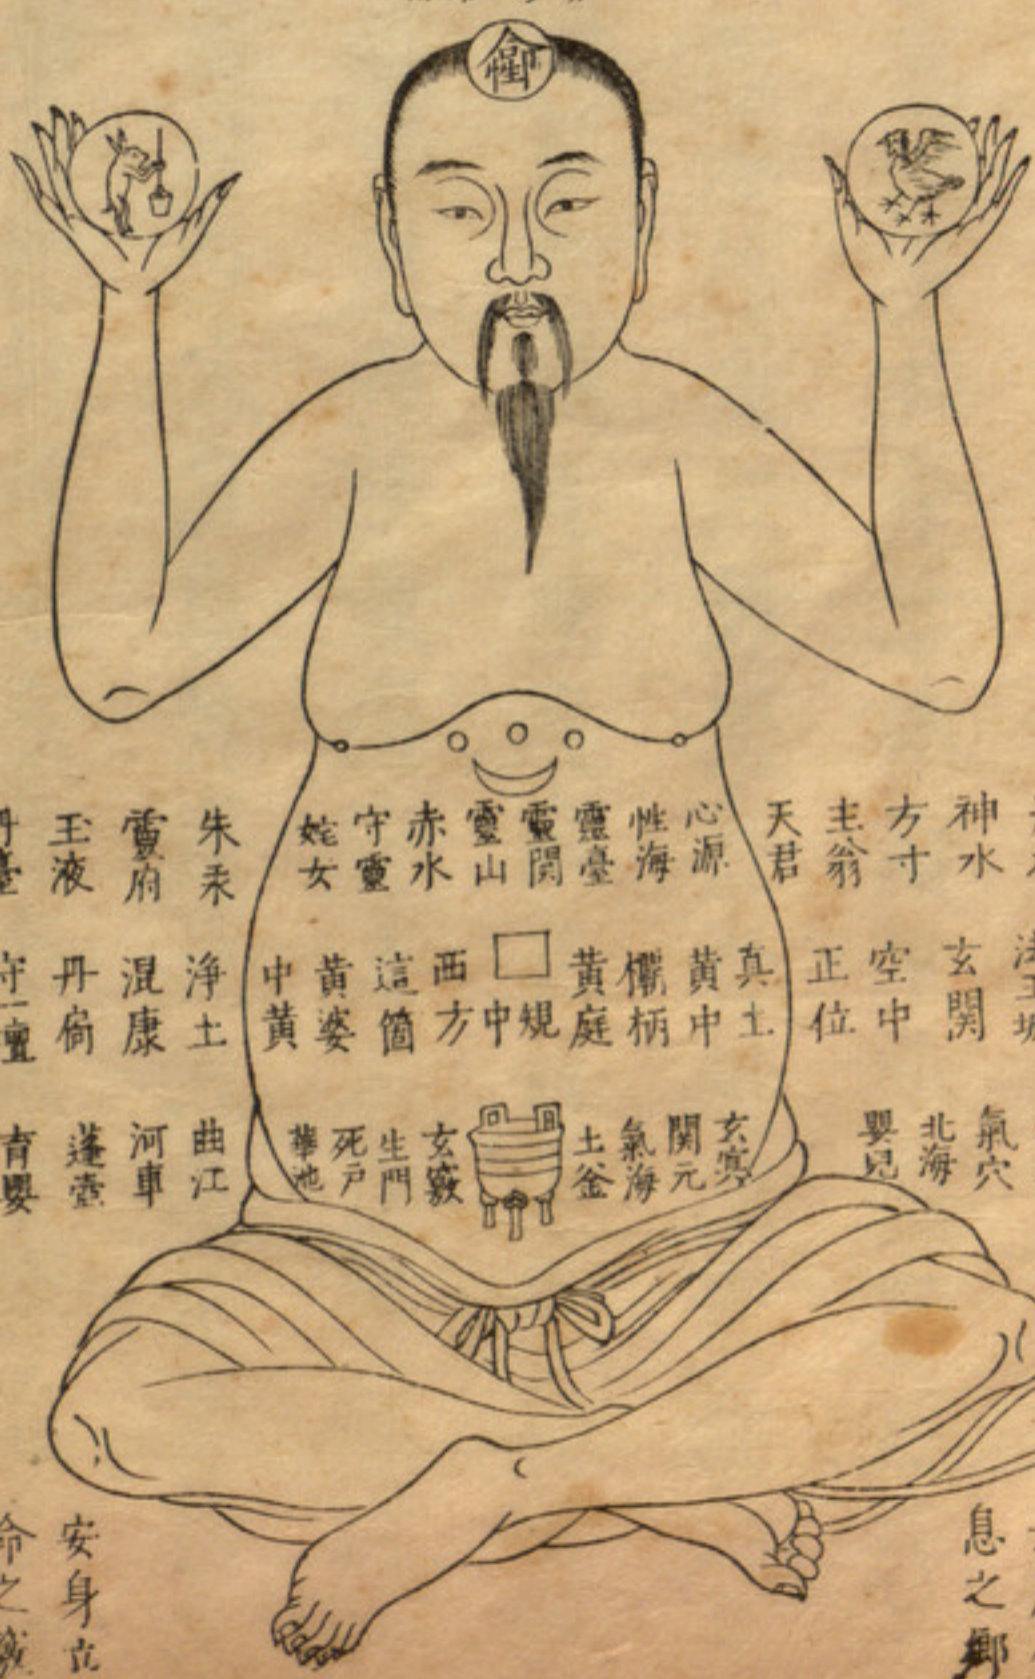 神水
方寸
主翁
天君
心源
性海
靈臺
靈関
靈山
赤水
守靈
姹女
朱汞
靈府
玉液
丹臺
玄関
空中
正位
真土
黄中
欛柄
黄庭
規中
西方
這箇
黄婆
中黄
淨土
混康
丹扃
守一壇
氣穴
北海
嬰兒
関元
氣海
土釜
玄竅
生門
死戸
華池
曲江
河車
蓬壺
育嬰
息之鄉
安身立
命之